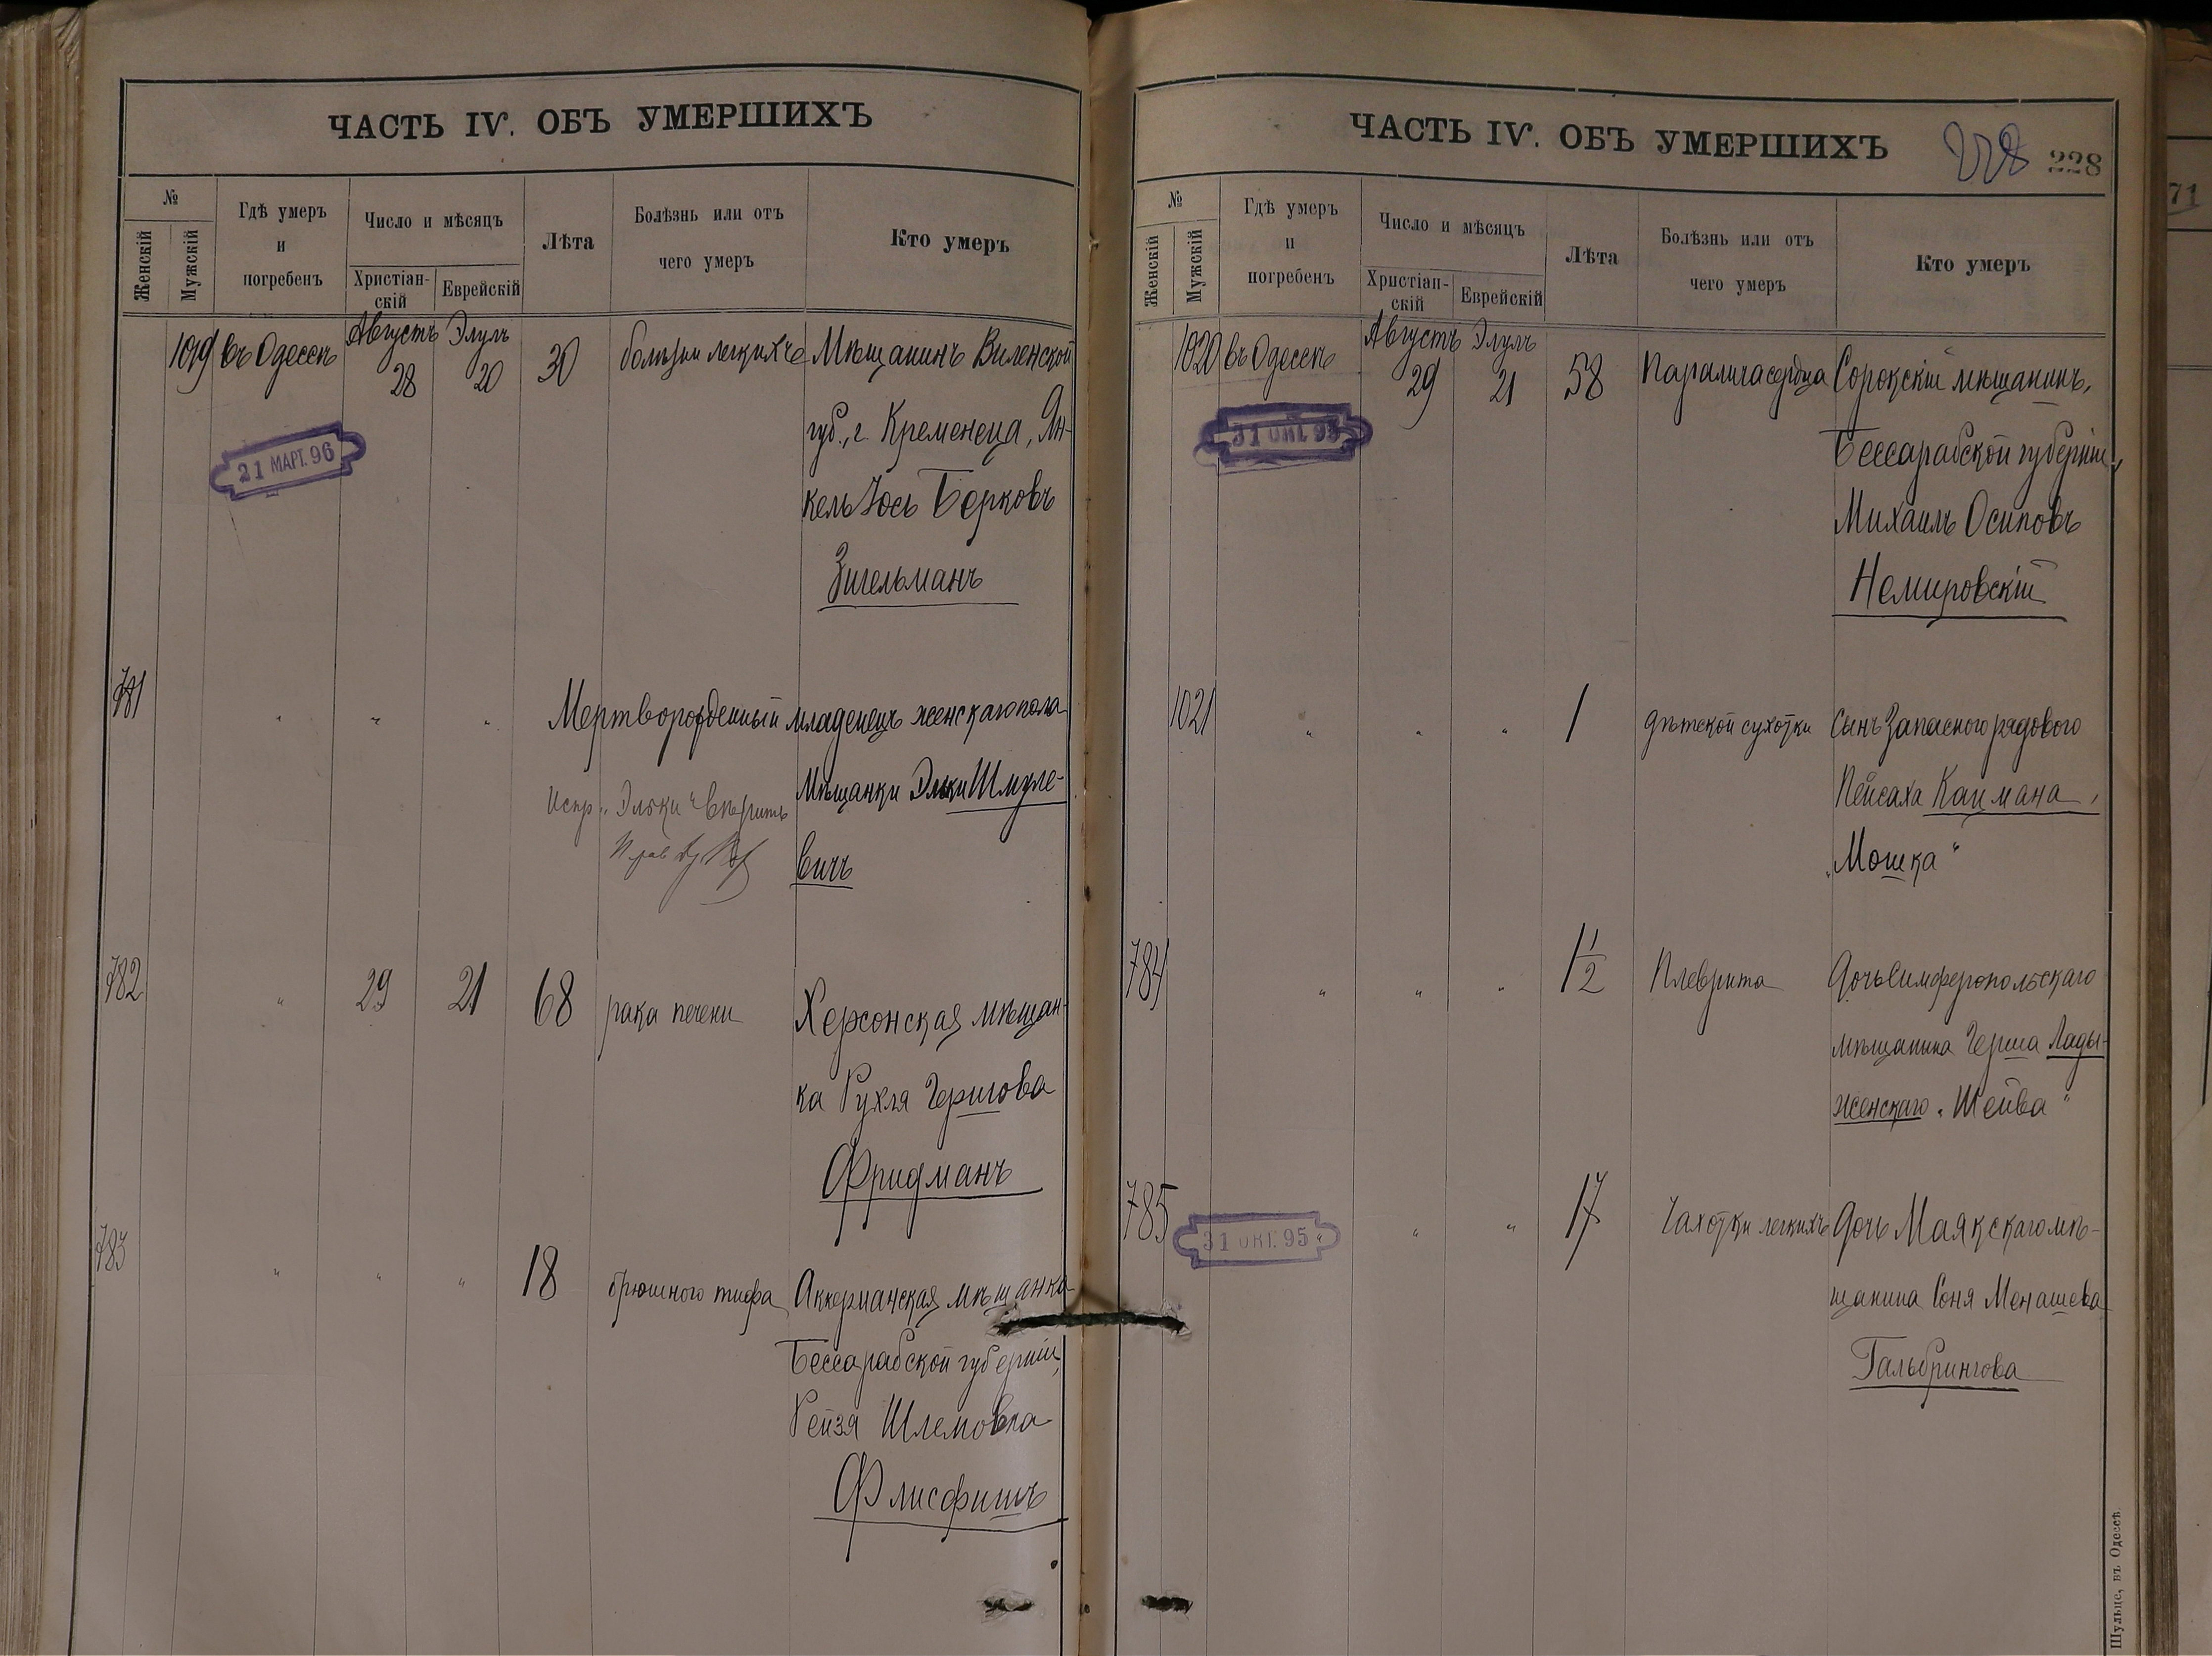 ЧАСТЬ IV. ОБЪ УМЕРШИХЪ
№
Женскій
Мужскій
Гдѣ умеръ
и
погребенъ
Число и мѣсяцъ
Христіан-
скій
Еврейскій
Лѣта
Болѣзнь или отъ
чего умеръ
Кто умеръ
Августъ Элулъ
1019 въ Одессѣ 28 20 30 болѣзни легкихъ Мѣщанинъ Виленской
губ., г. Кременеца, Ян-
кель Іось Берковъ
Зигельманъ
21 МАРТ. 96
781 " " " Мертворожденный младенецъ женскаго пола
мѣщанки Эльки Шмуле-
вичъ
Испр. "Эльки" вѣрить
782 " 29 21 68 рака печени Херсонская мѣщан-
ка Рухля Гершова
Фридманъ
783 " " " 18 брюшного тифа Аккерманская мѣщанка
Бессарабской губерніи,
Рейзя Шлемовна
Флисфишъ
ЧАСТЬ IV. ОБЪ УМЕРШИХЪ
228 228
№
Женскій
Мужскій
Гдѣ умеръ
и
погребенъ
Число и мѣсяцъ
Христіан-
скій
Еврейскій
Лѣта
Болѣзнь или отъ
чего умеръ
Кто умеръ
Августъ Элулъ
1020 въ Одессѣ 29 21 58 Паралича сердца Сорокскій мѣщанинъ,
Бессарабской губерніи,
Михаилъ Осиповъ
Немировскій
31 ОКТ. 95
1021 " " " 1 дѣтской сухотки Сынъ Запасного рядового
Пейсаха Кацмана,
"Мошка"
784 " " " 1 1/2 Плеврита Дочь Симферопольскаго
мѣщанина Герша Лады-
женскаго "Шейва"
785 " " " 17 Чахотки легкихъ Дочь Маякскаго мѣ-
щанина Соня Менашева
Гальбрингова
31 ОКТ. 95
Шульце, въ Одессѣ.
71